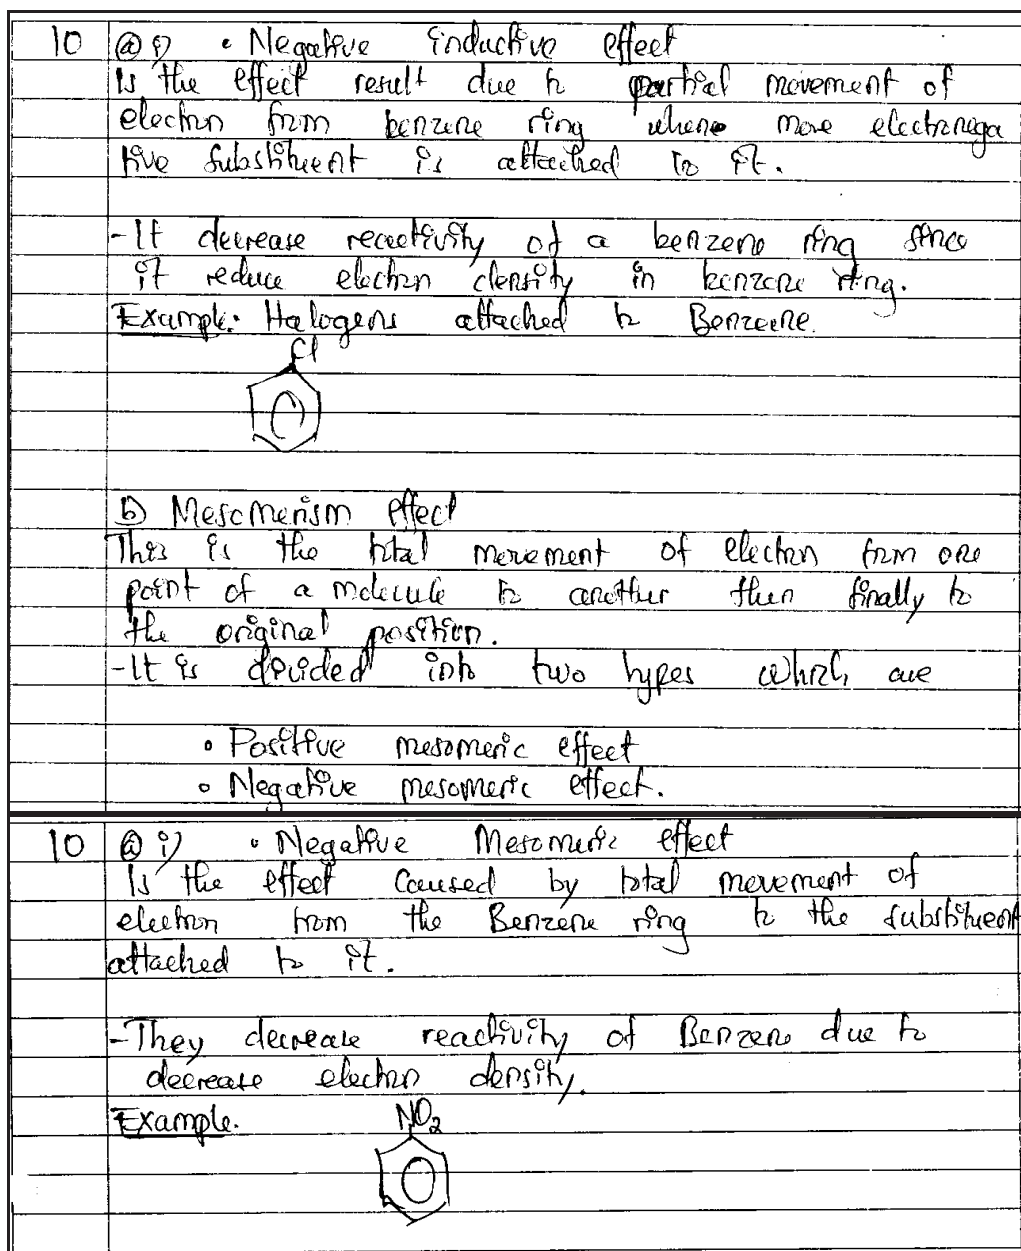 10 (a) i) • Negative inductive effect
Is the effect result due to partial movement of
electron from benzene ring where more electronega
tive substituent is attached to it.
-It decrease reactivity of a benzene ring since
it reduce electron density in benzene ring.
Example: Halogens attached to Benzene.
Cl
b) Mesomerism effect
This is the total movement of electron from one
point of a molecule to another then finally to
the original position.
-It is divided into two types which are
• Positive mesomeric effect
• Negative mesomeric effect.
10 (a) i) • Negative Mesomeric effect
Is the effect Caused by total movement of
electron from the Benzene ring to the substituent
attached to it.
-They decrease reactivity of Benzene due to
decrease electron density.
Example.
NO2